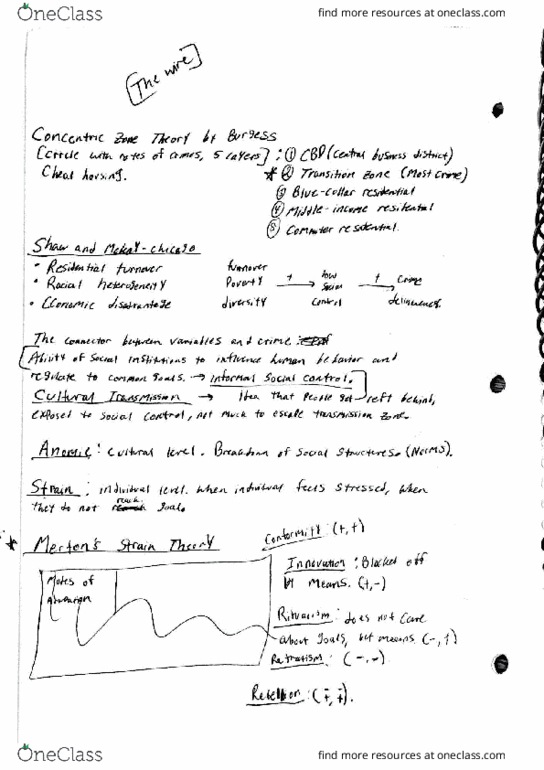 OneClass
find more resources at oneclass.com
[The wire]
Concentric Zone Theory by Burgess
[Circle with rates of crimes, 5 layers] : ① CBD (Central business district)
Cheap housing.
* ② Transition Zone (Most Crime)
③ Blue-collar residential
④ Middle-income residential
⑤ Commuter residential.
Shaw and McKay - Chicago
• Residential turnover
• Racial heterogeneity
• Economic disadvantage
turnover
Poverty + → low Social + → Crime
diversity control delinquency
The connector between variables and crime :
[Ability of Social Institutions to influence human behavior and
regulate to common goals. → Informal Social control.]
Cultural Transmission → Idea that people get left behind,
exposed to social control, not much to escape transmission zone.
Anomie : Cultural level. Breakdown of Social Structures (Norms).
Strain : individual level. When individual feels stressed, when
they do not reach goals.
* Merton's Strain Theory
Conformity : (+, +)
Modes of
Adaptation
Innovation : Blocked off
Means. (+, -)
Ritualism : does not care
about goals, but means (-, +)
Retreatism : (-, -).
Rebellion : (∓, ∓).
OneClass
find more resources at oneclass.com